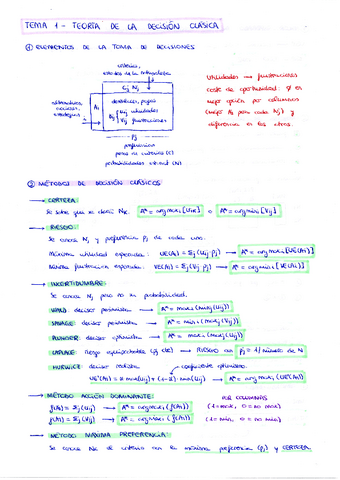 TEMA 1 - TEORÍA DE LA DECISIÓN CLÁSICA
① ELEMENTOS DE LA TOMA DE DECISIONES
criterios,
estados de la naturaleza
Cj Nj
alternativas,
acciones,
estrategias
Ai
desenlaces, pagos
Rij { Uij utilidades
Vij frustraciones
Pj
preferencias
pesos de criterios (C)
probabilidades est. nat (N)
Utilidades → frustraciones
coste de oportunidad: ∀ es
mejor opción por columnas
(mejor Ai para cada Nj) y
diferencia en las otras.
② MÉTODOS DE DECISIÓN CLÁSICOS
→ CERTEZA:
Se sabe que se dará Nk. A* = argmaxi [Uik] o A* = argmini [Vij]
→ RIESGO:
Se conoce Nj y preferencia Pj de cada uno.
Máxima utilidad esperada: UE(Ai) = Σj (Uij · pj) → A* = argmaxi [UE(Ai)]
Mínima frustración esperada: VE(Ai) = Σj (Vij · pj) → A* = argmini [VE(Ai)]
→ INCERTIDUMBRE:
Se conoce Nj pero no su probabilidad.
WALD: decisor pesimista → A* = maxi (minj (Uij))
SAVAGE: decisor pesimista → A* = mini (maxj (Vij))
PLUNGER: decisor optimista → A* = maxi (maxj (Uij))
LAPLACE: riesgo equiprobable (pj cte) → RIESGO con pj = 1/número de N
HURWICZ: decisor realista coeficiente optimismo
UE(Ai) = α maxj (Uij) + (1-α) · minj (Uij) → A* = argmaxi (UE(Ai))
→ MÉTODO ACCIÓN DOMINANTE: POR COLUMNAS
f(Ai) = Σj (Uij) → A* = argmaxi (f(Ai)) (1 = max, 0 = no max)
f(Ai) = Σj (Vij) → A* = argmaxi (f(Ai)) (1 = min, 0 = no min)
→ MÉTODO MÁXIMA PREFERENCIA:
Se escoge Nk de criterio con la máxima preferencia (pj) y CERTEZA.